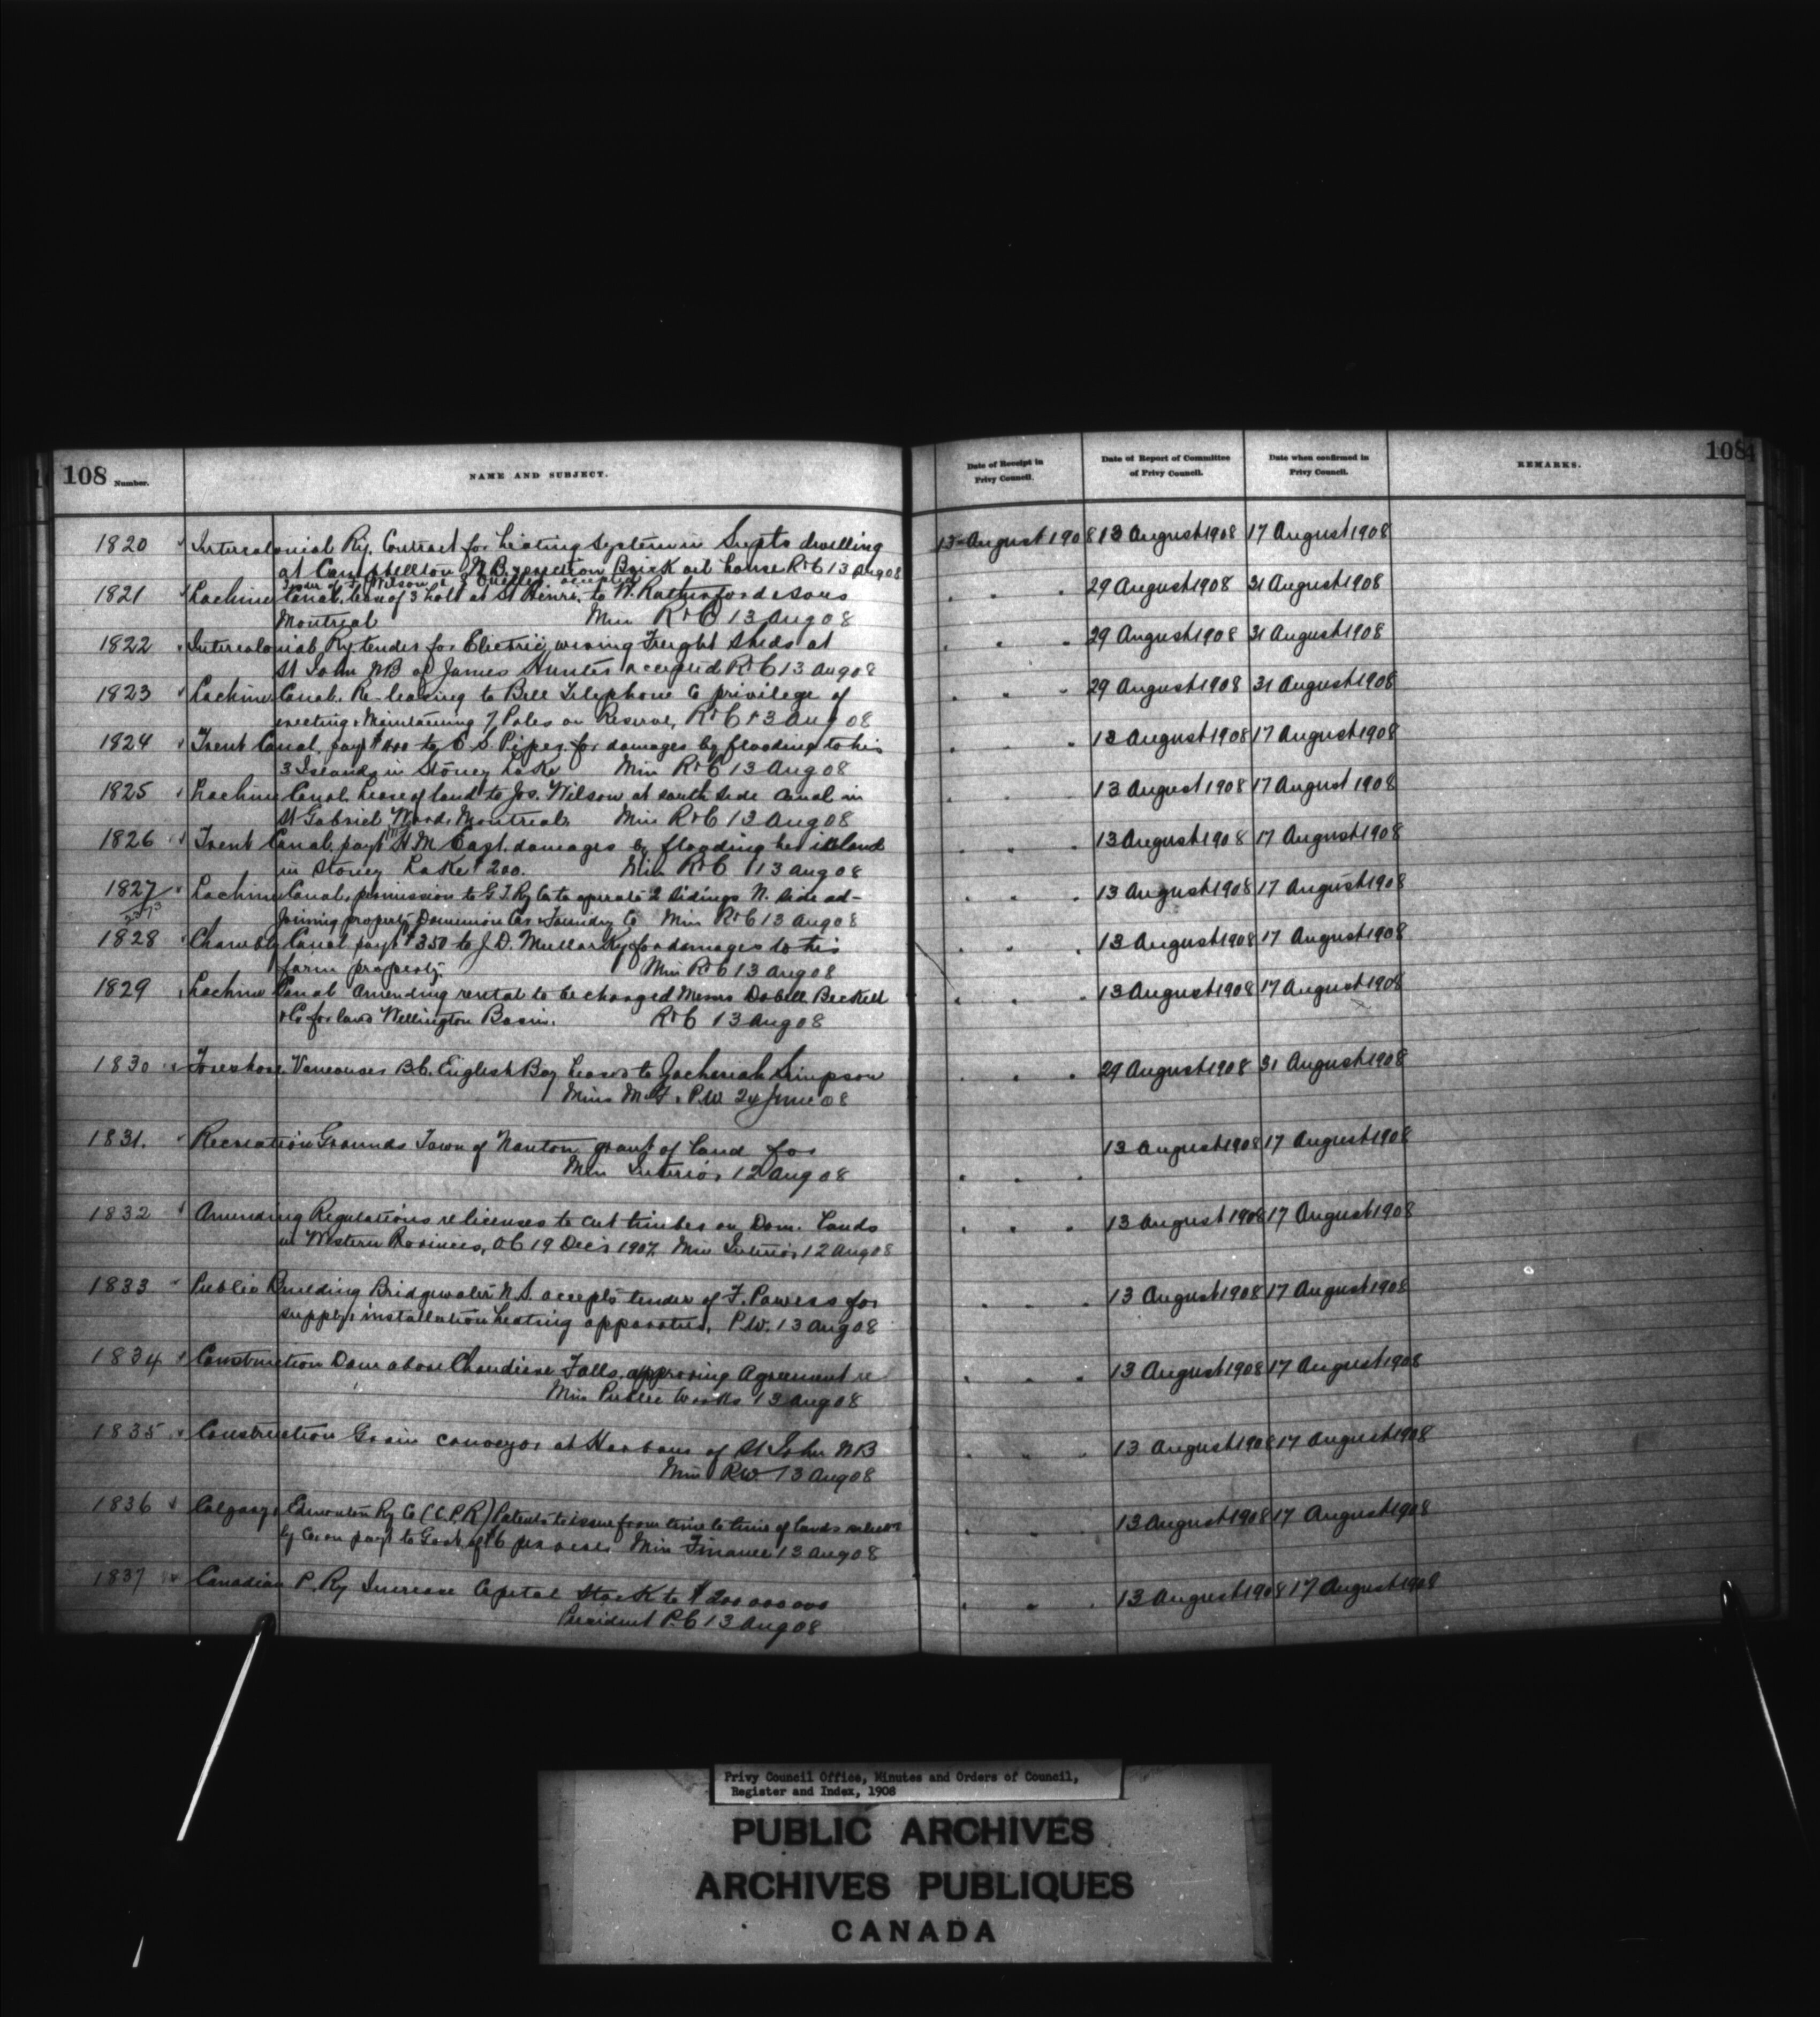 108 Number.
NAME AND SUBJECT.
Date of Receipt in Privy Council.
Date of Report of Committee of Privy Council.
Date when confirmed in Privy Council.
REMARKS.
108
1820 Intercolonial Ry. Contract for heating system in Supts dwelling 13 August 1908 13 August 1908 17 August 1908
at Campbellton N.B. & erection Brick oil house R&C 13 Aug 08
1821 Lachine Canal. lease of 3 hold at St Henri, to W. Rutherford & Sons " " " 29 August 1908 31 August 1908
Montreal Min R&C 13 Aug 08
1822 Intercolonial Ry tender for Electric wiring Freight Sheds at " " 29 August 1908 31 August 1908
St John NB of James Hunter accepted R&C 13 Aug 08
1823 Lachine Canal. Re-leasing to Bell Telephone Co privilege of " " " 29 August 1908 31 August 1908
erecting & Maintaining 7 Poles on Reserve, R&C 13 Aug 08
1824 Trent Canal, payt to C. S. Piper for damages by flooding to his " " 13 August 1908 17 August 1908
3 Islands in Stoney Lake Min R&C 13 Aug 08
1825 Lachine Canal Lease of land to Jos. Wilson at south side canal in " " 13 August 1908 17 August 1908
St Gabriel Ward, Montreal Min R&C 13 Aug 08
1826 Trent Canal, payt H. M. damages by flooding her island " " " 13 August 1908 17 August 1908
in Stoney Lake $200. Min R&C 13 Aug 08
1827 Lachine Canal, permission to G.T.Ry Co to operate 2 sidings N. side ad- " " " 13 August 1908 17 August 1908
joining property Dominion Car & Foundry Co Min R&C 13 Aug 08
1828 Chambly Canal payt $350 to J. D. Mullarky for damages to his " " " 13 August 1908 17 August 1908
farm property. Min R&C 13 Aug 08
1829 Lachine Canal Amending rental to be charged Messrs Dobell Beckett " " " 13 August 1908 17 August 1908
& Co for land Wellington Basin. R&C 13 Aug 08
1830 Foreshore, Vancouver B.C. English Bay Lease to Zachariah Simpson " " " 29 August 1908 31 August 1908
Mins M&F & PW 24 June 08
1831. Recreation Grounds Town of Nanton grant of land for 13 August 1908 17 August 1908
Min Interior 12 Aug 08 " " "
1832 Amending Regulations re licenses to cut timber on Dom. Lands " " " 13 August 1908 17 August 1908
in Western Provinces, OC 19 Decr 1907. Min Interior 12 Aug 08
1833 Public Building Bridgewater N.S. accepts tender of F. Powers for " " " 13 August 1908 17 August 1908
supply & installation heating apparatus, P.W. 13 Aug 08
1834 Construction Dam above Chaudiere Falls, approving Agreement re " " " 13 August 1908 17 August 1908
Min Public Works 13 Aug 08
1835 Construction Grain conveyor at Harbour of St John NB " " " 13 August 1908 17 August 1908
Min P.W. 13 Aug 08
1836 Calgary & Edmonton Ry Co (C.P.R) Patents to issue from time to time of lands " " 13 August 1908 17 August 1908
by Co. on payt to Govt of per acre. Min Finance 13 Aug 08
1837 Canadian P. Ry Increase Capital Stock to $200 000 000 " " " 13 August 1908 17 August 1908
President P.C 13 Aug 08
Privy Council Office, Minutes and Orders of Council,
Register and Index, 1908
PUBLIC ARCHIVES
ARCHIVES PUBLIQUES
CANADA